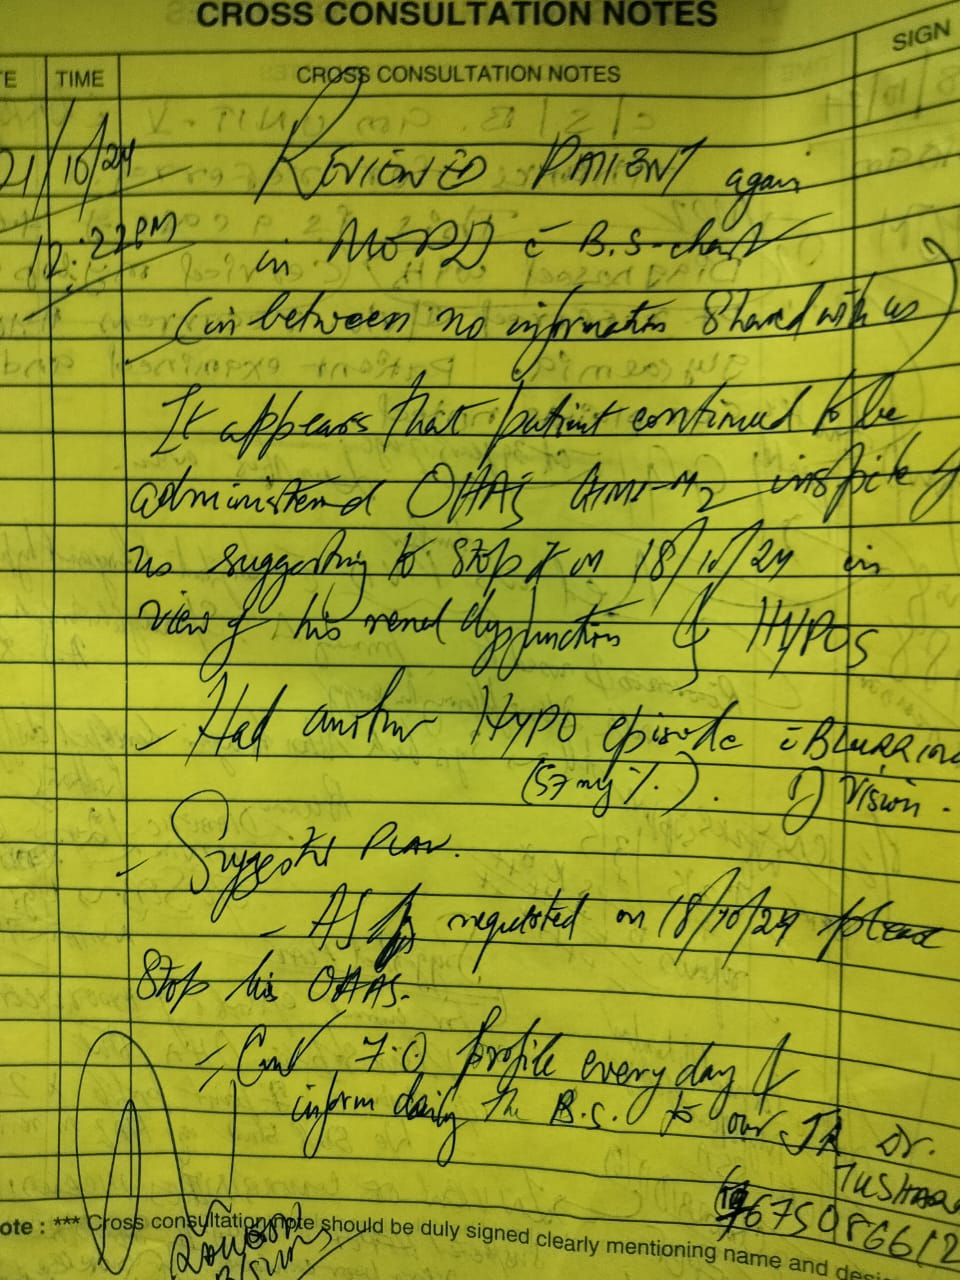 CROSS CONSULTATION NOTES
TIME CROSS CONSULTATION NOTES SIGN
21/10/24 REVIEWED PATIENT again
12:22PM in MOPD c̄ B.S-chart
(in between no information shared with us)
It appears that patient continued to be
administered OHAs GM1-M2 inspite of
us suggesting to stop it on 18/10/24 in
view of his renal dysfunction & HYPOS
- Had another HYPO episode c̄ BLURRING
(57 mg%). of vision.
- Suggested PLAN.
- AS requested on 18/10/24 please
Stop his OHAS.
- Cont 7.0 profile every day &
inform daily the B.S. to our JR Dr.
TUSHAR
9675086612
ote : *** Cross consultation note should be duly signed clearly mentioning name and desi